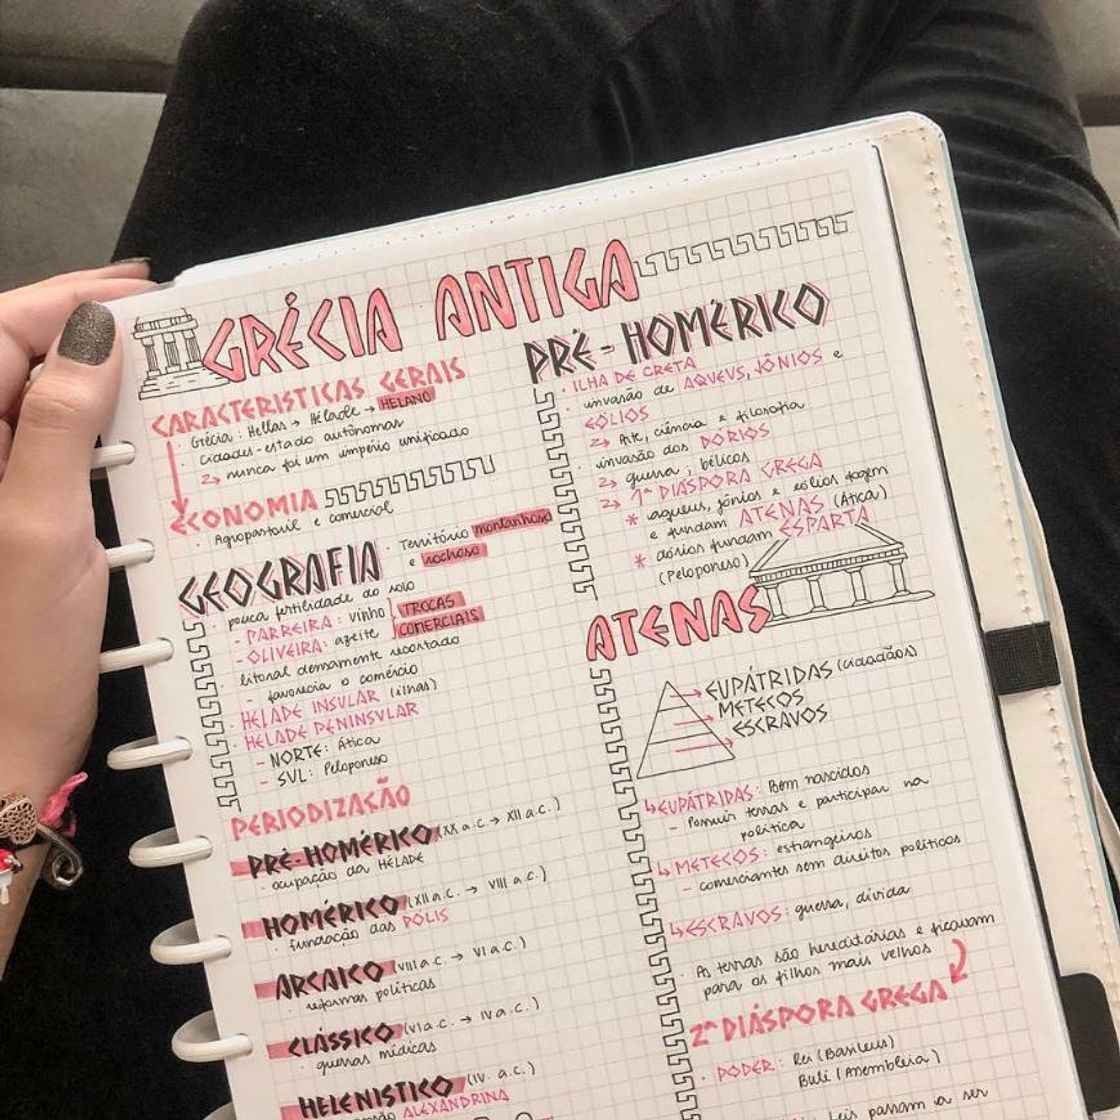 GRÉCIA ANTIGA
CARACTERISTICAS GERAIS
· Grécia: Hellas → Hélade → HELANO
· cidades-estado autônomas
↳ nunca foi um império unificado
ECONOMIA
· Agropastoril e comercial
GEOGRAFIA
· Território montanhoso
e rochoso
· pouca fertilidade do solo
- PARREIRA: vinho
- OLIVEIRA: azeite
TROCAS
COMERCIAIS
· litoral densamente recortado
- favorecia o comércio
· HELADE INSULAR (ilhas)
· HELADE PENINSULAR
- NORTE: Ática
- SUL: Peloponeso
PERIODIZAÇÃO
PRÉ-HOMÉRICO (XX a.c. → XII a.c.)
· ocupação da HÉLADE
HOMÉRICO (XII a.c. → VIII a.c.)
· fundação das PÓLIS
ARCAICO (VIII a.c. → VI a.c.)
· reformas políticas
CLÁSSICO (VI a.c. → IV a.c.)
· guerras médicas
HELENISTICO (IV. a.c.)
ALEXANDRINA
PRÉ-HOMÉRICO
· ILHA DE CRETA
· invasão de AQUEUS, JÔNIOS e
EÓLIOS
↳ Arte, ciência e filosofia
· invasão dos DÓRIOS
↳ guerra; bélicos
↳ 1ª DIÁSPORA GREGA
* aqueus, jônios e eólios fogem
e fundam ATENAS (Ática)
* dórios fundam ESPARTA
(Peloponeso)
ATENAS
→ EUPÁTRIDAS (cidadãos)
→ METECOS
→ ESCRAVOS
↳ EUPÁTRIDAS: Bem nascidos
- Possuir terras e participar na
política
↳ METECOS: estrangeiros
- comerciantes sem direitos políticos
↳ ESCRAVOS: guerra, dívida
· As terras são hereditárias e ficavam
para os filhos mais velhos
2ª DIÁSPORA GREGA
· PODER: Rei (Basileus)
Bulé (Assembleia)
passam a ser